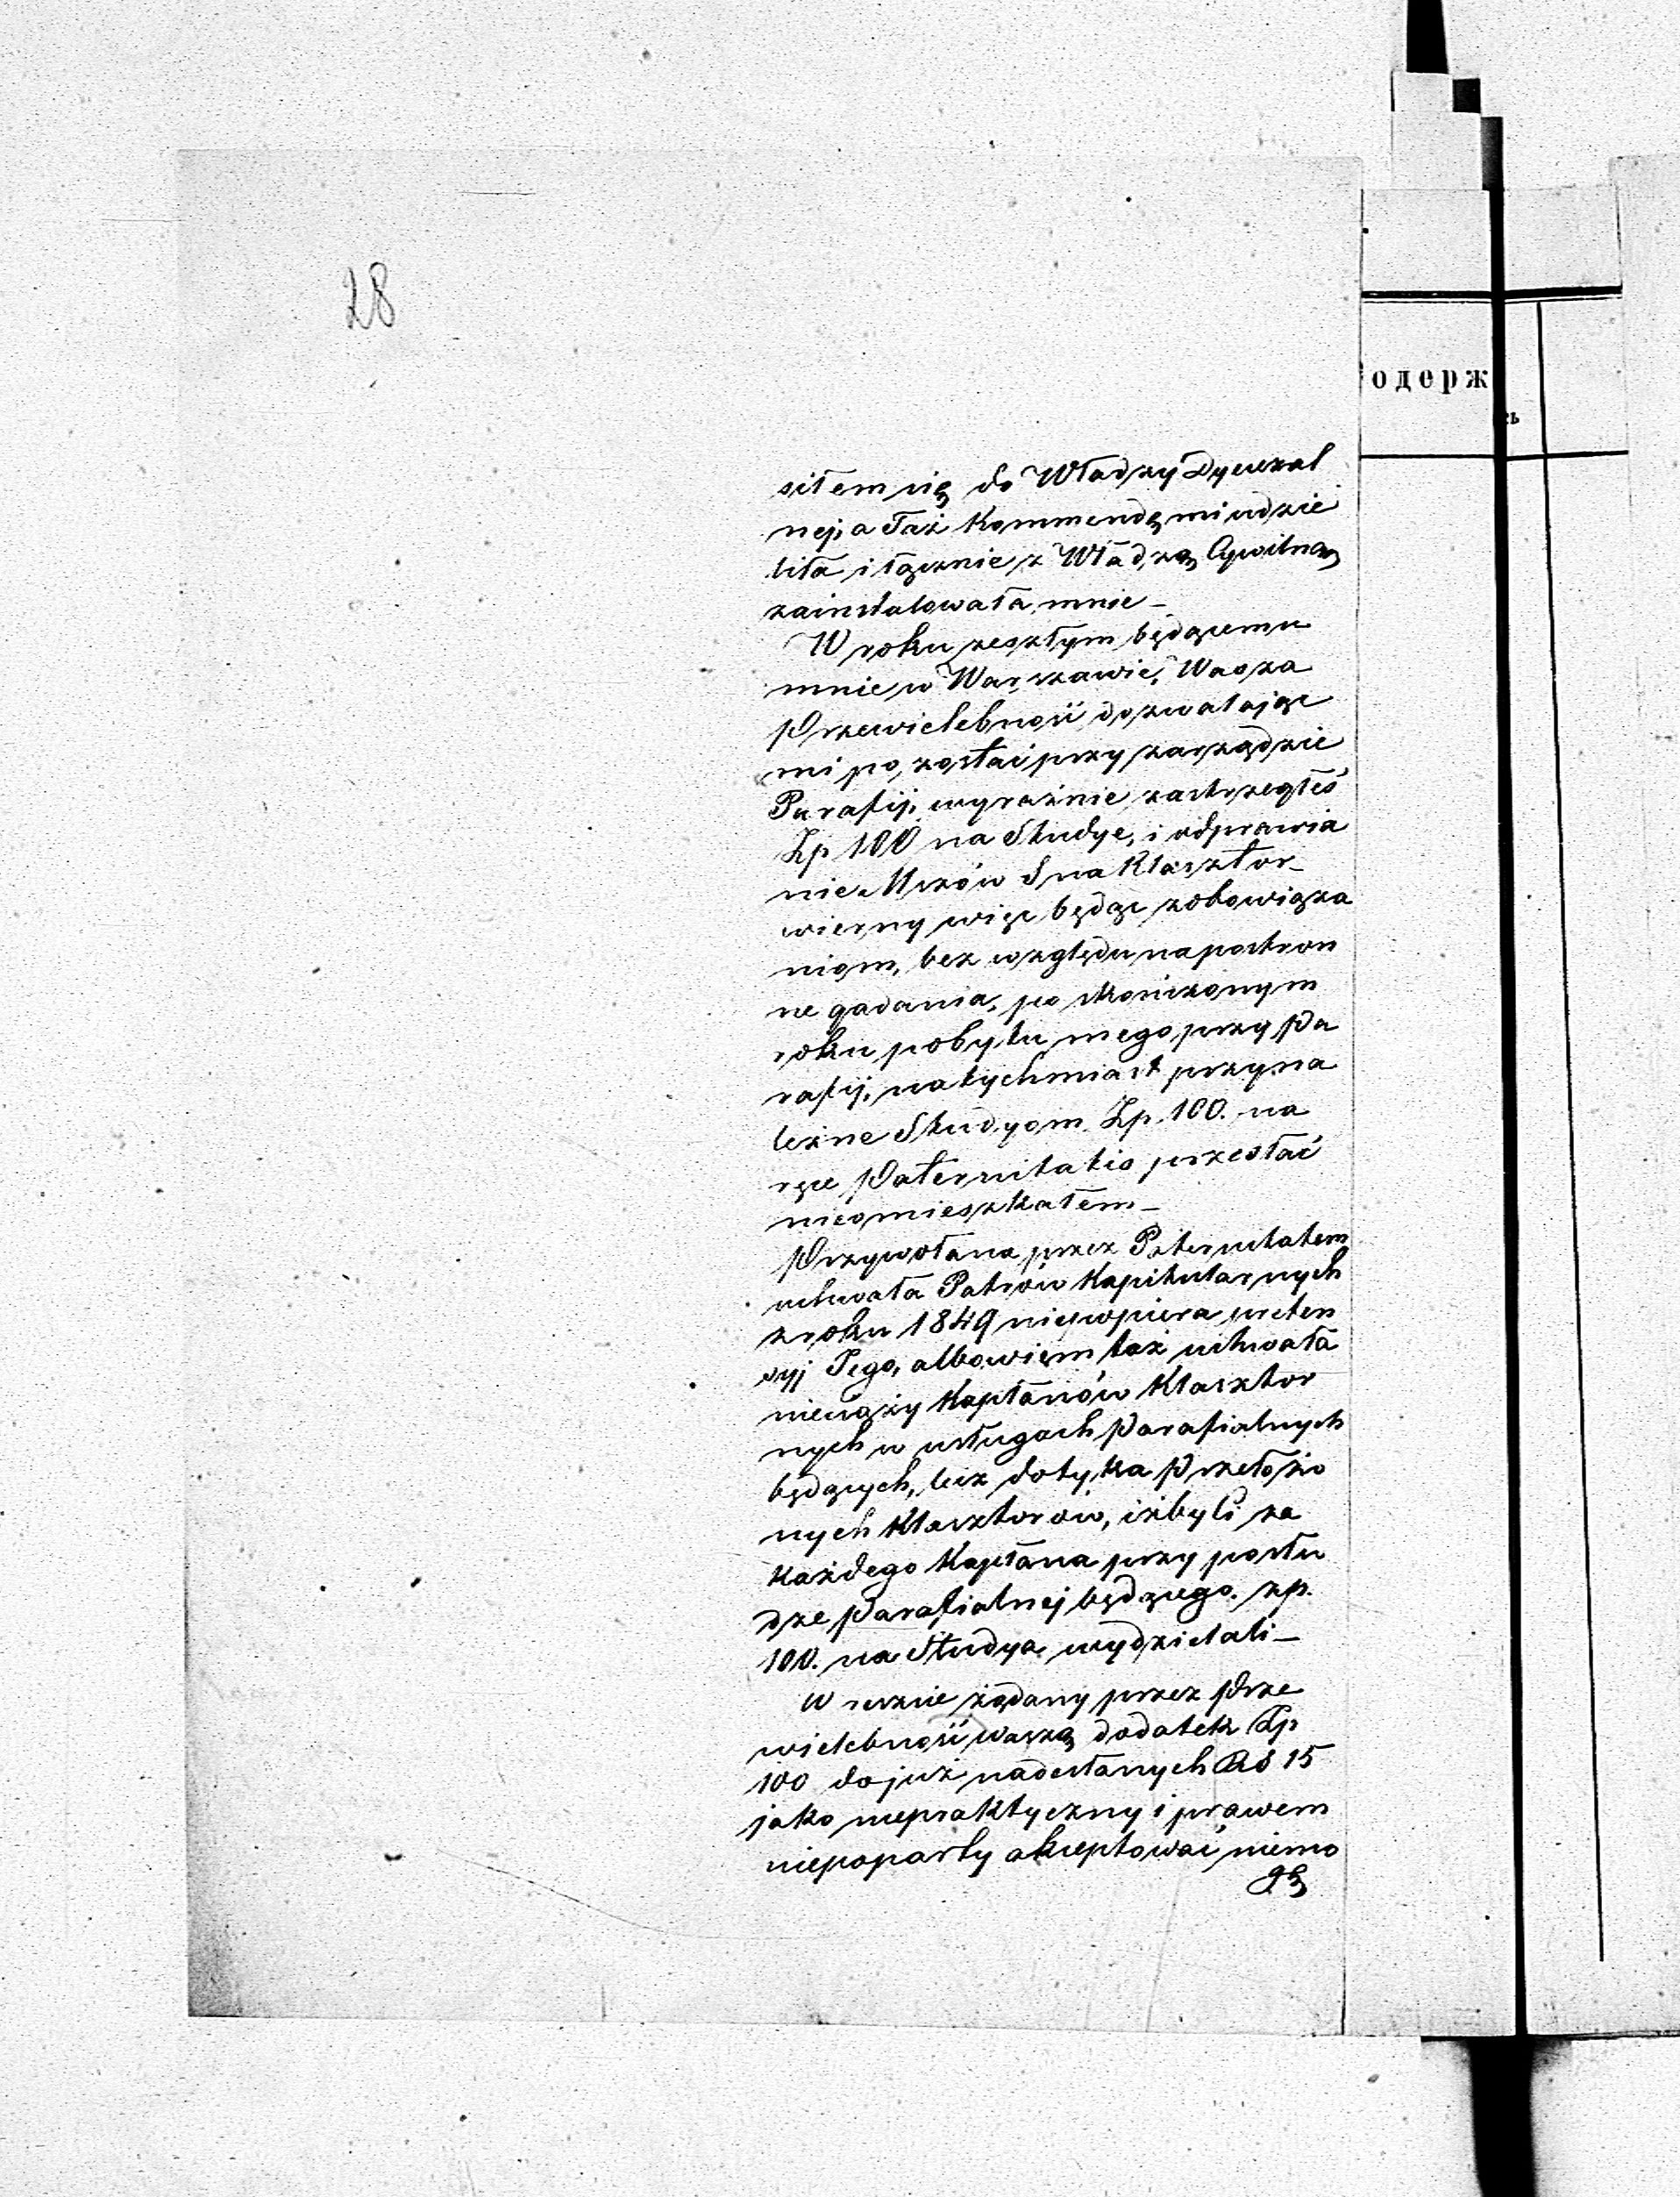 28
siłem się do Władzy Dyecezal
nej, a Taż Kommendę mi udzie
liła i łącznie z Władzą Cywilną
zainstalowała mnie –
W roku zeszłym będącemu
mnie w Warszawie, Wasza
Przewielebność dozwalając
mi pozostać przy zarządzie
Parafij, wyraźnie zastrzegłeś
Zp 100 na Studye, i odprawia
nie Mszów 5 na Klasztor –
wierny więc będąc zobowiąza
niom, bez względu na postron
ne gadania, po skończonym
roku pobytu mego przy Pa
rafij, natychmiast przyna
leżne Studyom Zp. 100. na
ręce Paternitatis przesłać
nieomieszkałem –
Przywołana przez Paternitatem
uchwała Patrów Kapitularnych
z roku 1849 niepopiera preten
syj Tego, albowiem taż uchwała
nieciąży Kapłanów Klasztor
nych w usługach Parafialnych
będących, lecz dotyka Przełożo
nych Klasztorów, iżbyli za
każdego Kapłana przy posłu
dze Parafialnej będącego. zp.
100. na Studya wydzielali –
Wreszcie żądany przez Prze
wielebność waszą dodatek Zp
100 do już nadesłanych Rs 15
jako niepraktyczny i prawem
niepoparty akceptować niemo
gę
одерж
ь